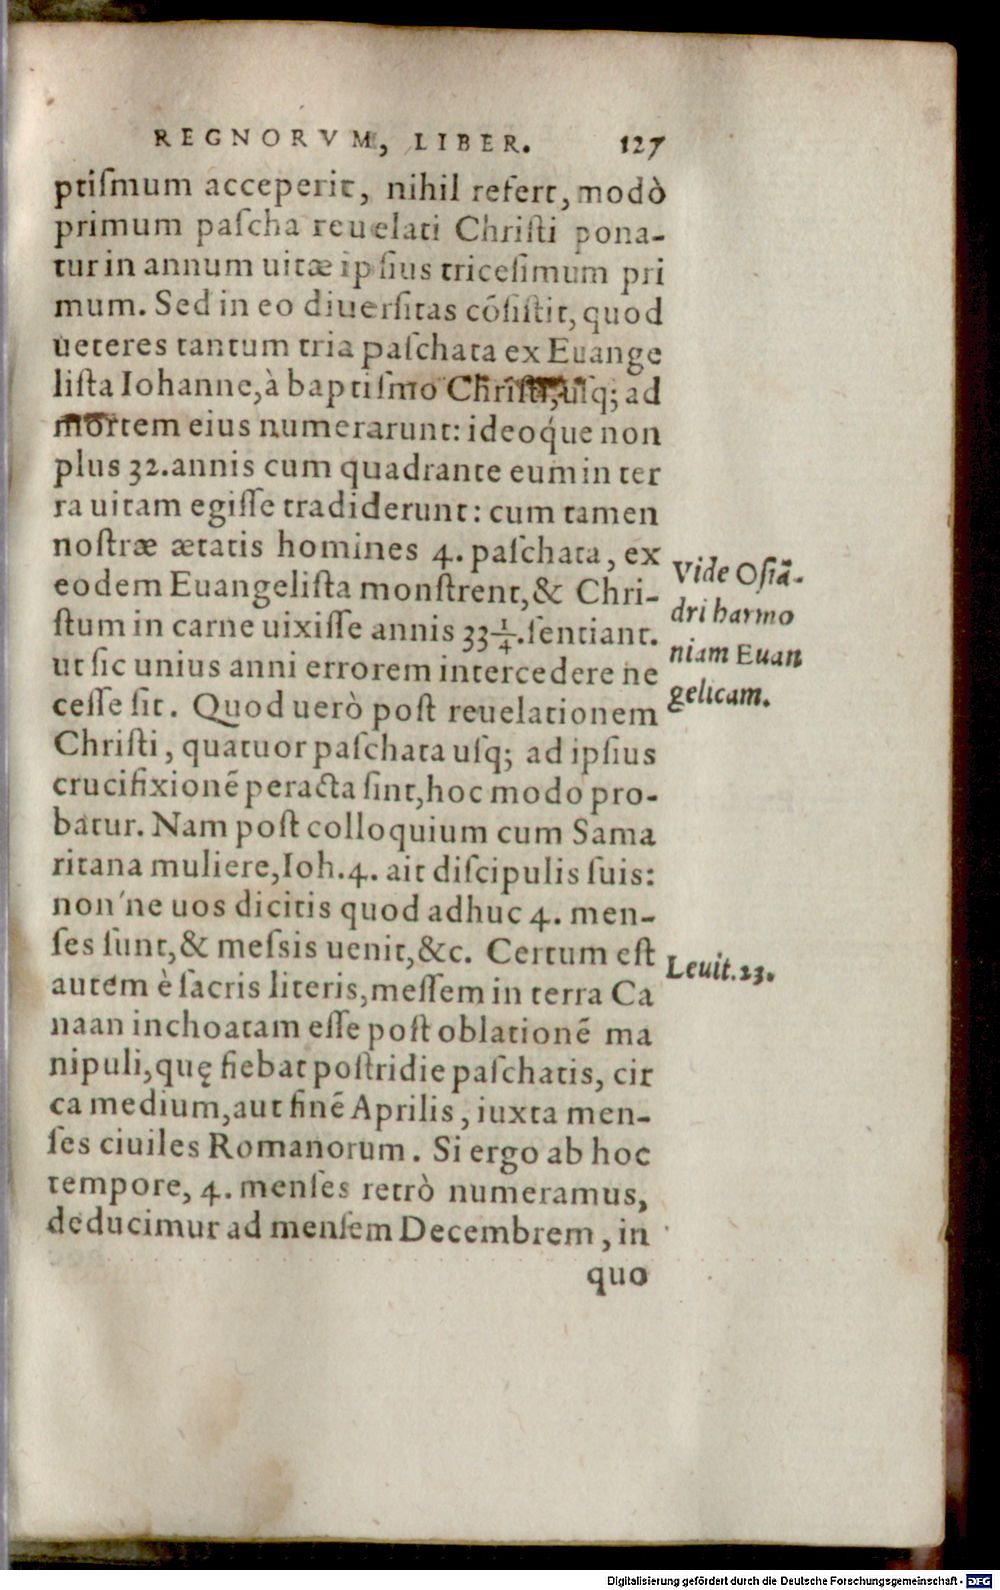 REGNORVM, LIBER. 127
ptiſmum acceperit, nihil refert, modò
primum paſcha reuelati Chriſti pona-
tur in annum uitæ ipſius triceſimum pri
mum. Sed in eo diuerſitas cõſiſtit, quod
ueteres tantum tria paſchata ex Euange
liſta Iohanne, à baptiſmo Chriſti, uſq; ad
mortem eius numerarunt: ideoq́ue non
plus 32. annis cum quadrante eum in ter
ra uitam egiſſe tradiderunt: cum tamen
noſtræ ætatis homines 4. paſchata, ex
eodem Euangeliſta monſtrent, & Chri-
ſtum in carne uixiſſe annis 33 1/4. ſentiant.
ut ſic unius anni errorem intercedere ne
ceſſe ſit. Quod uerò poſt reuelationem
Chriſti, quatuor paſchata uſq; ad ipſius
crucifixionẽ peracta ſint, hoc modo pro-
batur. Nam poſt colloquium cum Sama
ritana muliere, Ioh. 4. ait diſcipulis ſuis:
non'ne uos dicitis quod adhuc 4. men-
ſes ſunt, & meſsis uenit, &c. Certum eſt
autem è ſacris literis, meſſem in terra Ca
naan inchoatam eſſe poſt oblationẽ ma
nipuli, quę fiebat poſtridie paſchatis, cir
ca medium, aut finẽ Aprilis, iuxta men-
ſes ciuiles Romanorum. Si ergo ab hoc
tempore, 4. menſes retrò numeramus,
deducimur ad menſem Decembrem, in
quo
Vide Oſiã-
dri harmo
niam Euan
gelicam.
Leuit. 23.
Digitalisierung gefördert durch die Deutsche Forschungsgemeinschaft - DFG